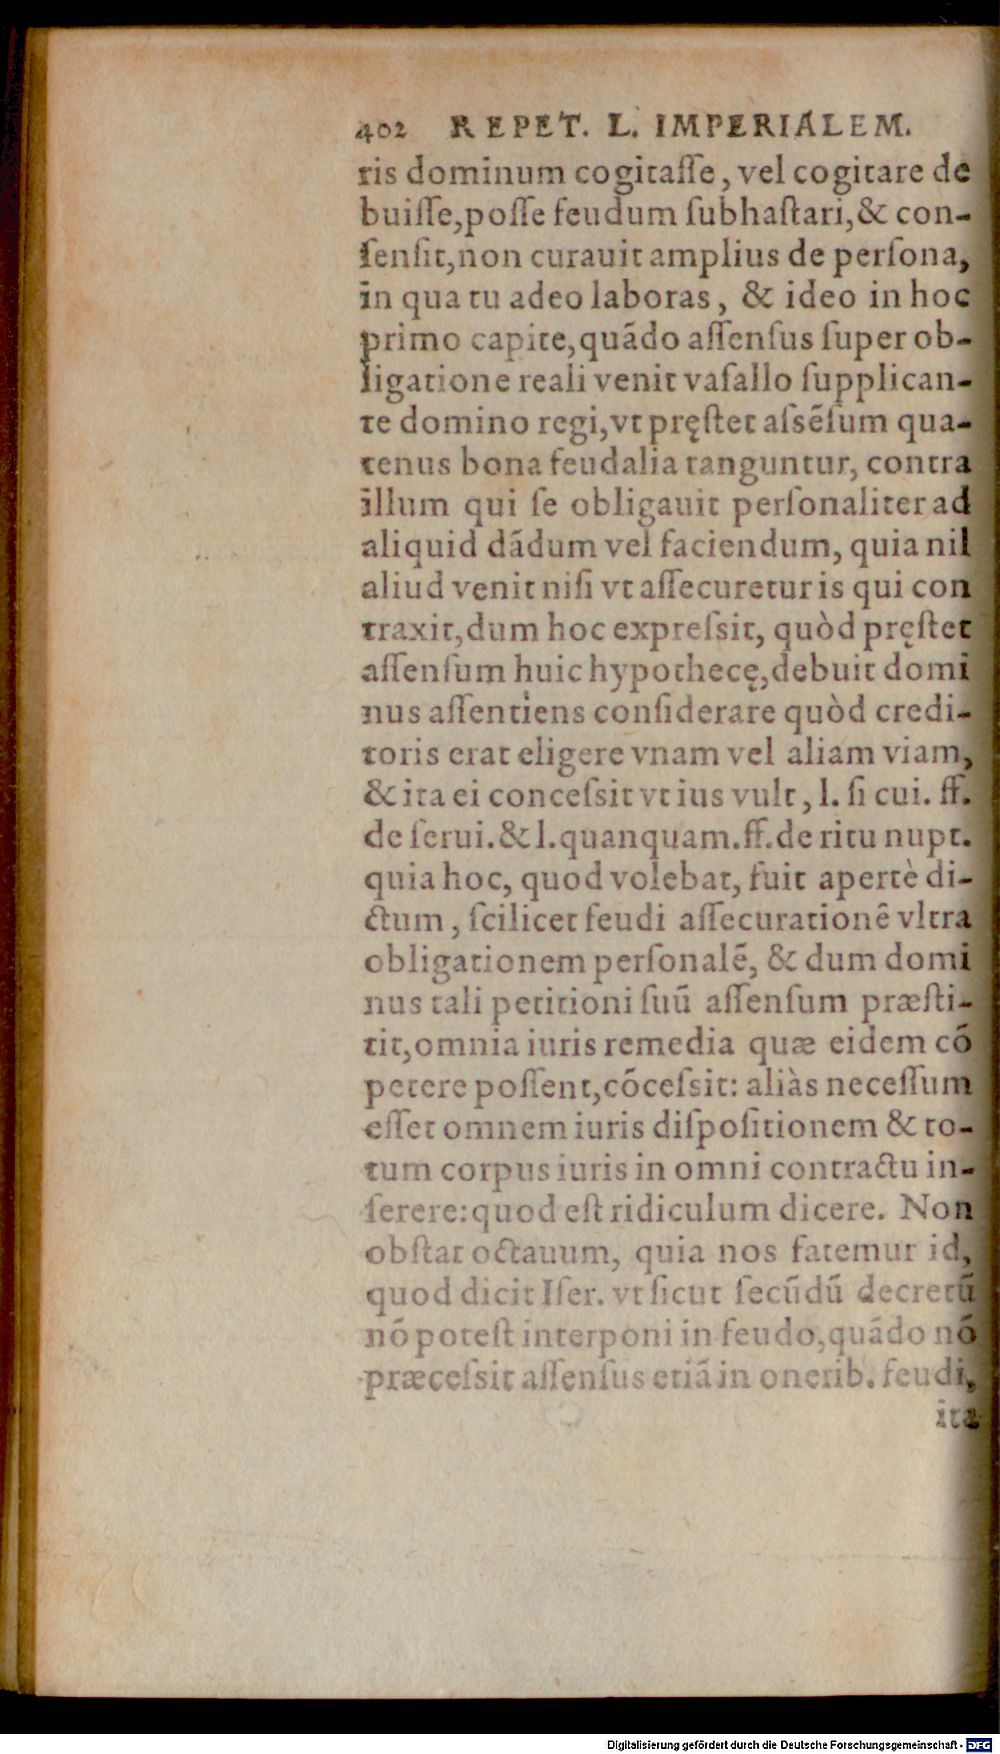 402 REPET. L. IMPERIALEM.
ris dominum cogitaſſe, vel cogitare de
buiſſe, poſſe feudum ſubhaſtari, & con-
ſenſit, non curauit amplius de perſona,
in qua tu adeo laboras, & ideo in hoc
primo capite, quãdo aſſenſus ſuper ob-
ligatione reali venit vaſallo ſupplican-
te domino regi, vt pręſtet aſsẽſum qua-
tenus bona feudalia tanguntur, contra
illum qui ſe obligauit perſonaliter ad
aliquid dãdum vel faciendum, quia nil
aliud venit niſi vt aſſecuretur is qui con
traxit, dum hoc expreſsit, quòd pręſtet
aſſenſum huic hypothecę, debuit domi
nus aſſentiens conſiderare quòd credi-
toris erat eligere vnam vel aliam viam,
& ita ei conceſsit vt ius vult, l. ſi cui. ff.
de ſerui. & l. quanquam. ff. de ritu nupt.
quia hoc, quod volebat, fuit apertè di-
ctum, ſcilicet feudi aſſecurationẽ vltra
obligationem perſonalẽ, & dum domi
nus tali petitioni ſuũ aſſenſum præſti-
tit, omnia iuris remedia quæ eidem cõ
petere poſſent, cõceſsit: aliàs neceſſum
eſſet omnem iuris diſpoſitionem & to-
tum corpus iuris in omni contractu in-
ſerere: quod eſt ridiculum dicere. Non
obſtat octauum, quia nos fatemur id,
quod dicit Iſer. vt ſicut ſecũdũ decretũ
nõ poteſt interponi in feudo, quãdo nõ
præceſsit aſſenſus etiã in onerib. feudi,
ita
Digitalisierung gefördert durch die Deutsche Forschungsgemeinschaft - DFG